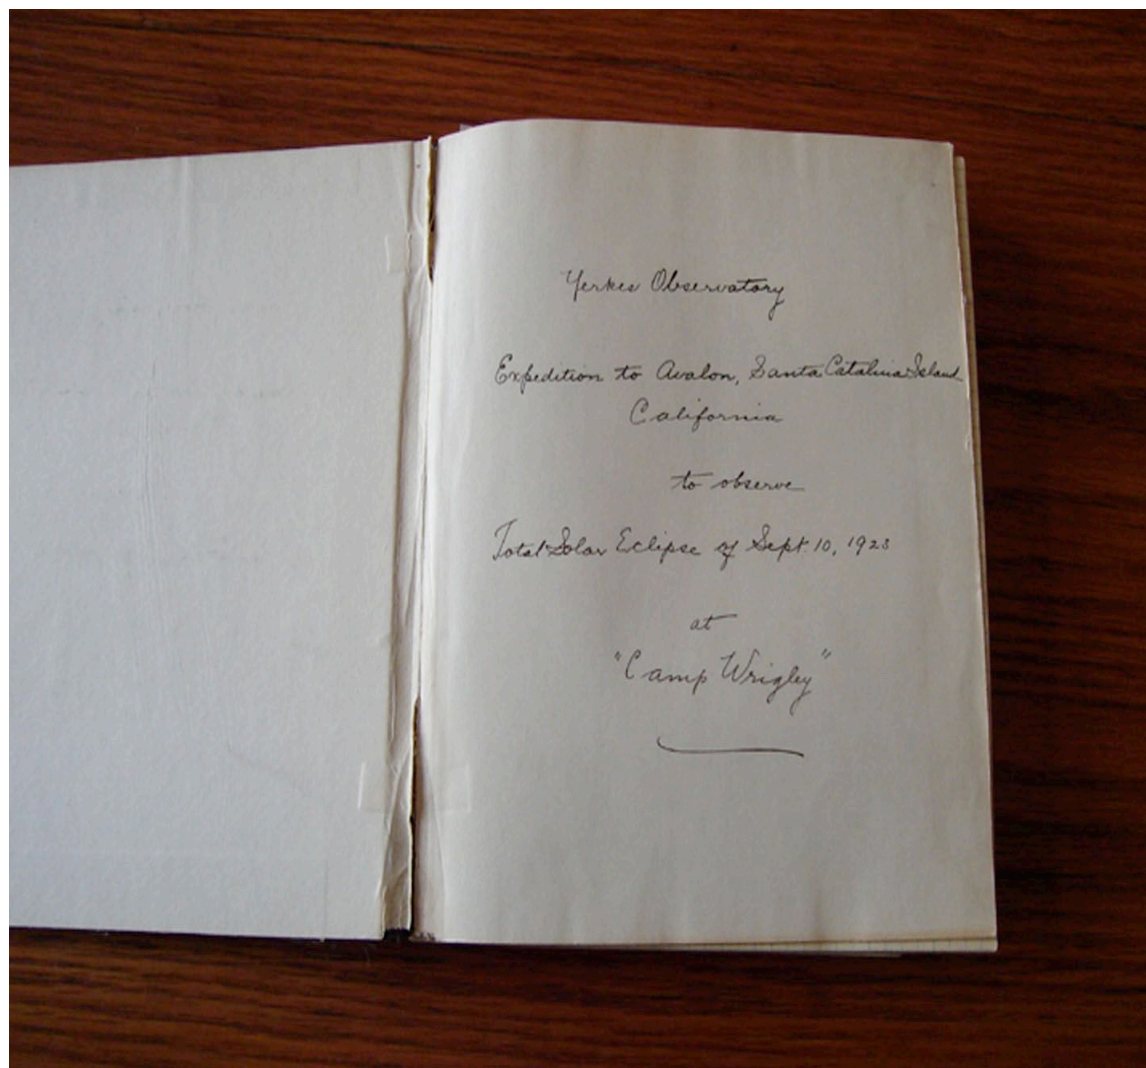 Yerkes Observatory
Expedition to Avalon, Santa Catalina Island
California
to observe
Total Solar Eclipse of Sept. 10, 1923
at
"Camp Wrigley"